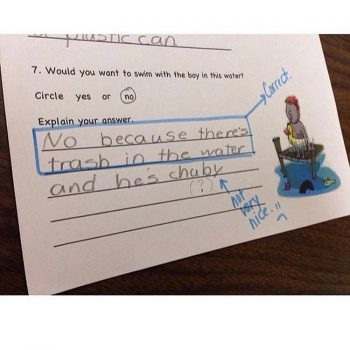 or plastic can
7. Would you want to swim with the boy in this water?
Circle yes or no
Correct.
Explain your answer.
No because there's
trash in the water
and he's chuby
(?)
not
very
nice..!!